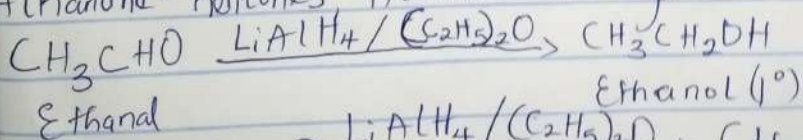 CH₃CHO LiAlH₄/(C₂H₅)₂O CH₃CH₂OH
Ethanal Ethanol (1°)
LiAlH₄/(C₂H₅)₂O